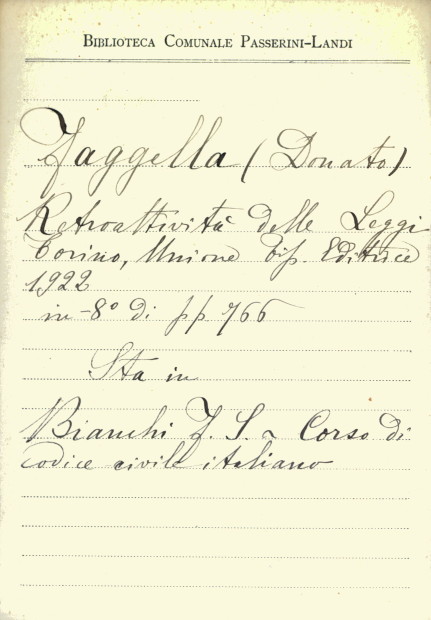 BIBLIOTECA COMUNALE PASSERINI-LANDI
Faggella (Donato)
Retroattività delle Leggi
Torino, Unione Tip. Editrice
1922
in-8° di pp 766
Sta in
Bianchi F. S. - Corso di
codice civile italiano